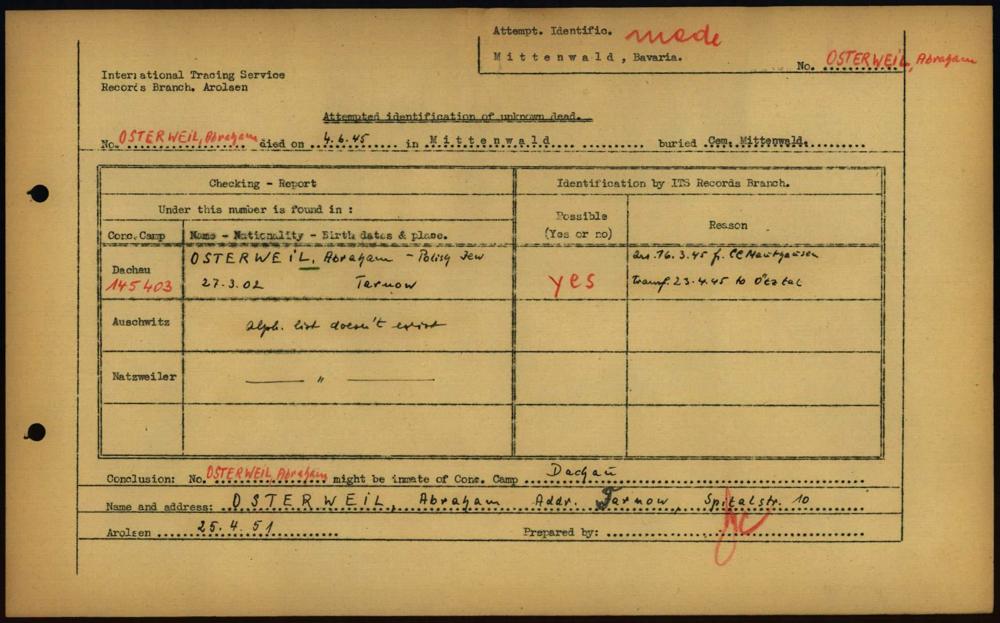 Attempt. Identific. made
Mittenwald, Bavaria.
No. OSTERWEIL, Abraham
International Tracing Service
Records Branch. Arolsen
Attempted identification of unknown dead.
No. OSTERWEIL, Abraham died on 4.6.45 in Mittenwald buried Cem. Mittenwald.
Checking - Report
Identification by ITS Records Branch.
Under this number is found in :
Possible
(Yes or no)
Reason
Conc. Camp
Name - Nationality - Birth dates & place.
OSTERWEIL, Abraham - Polish Jew
arr. 16.3.45 f. CC Mauthausen
Dachau
145403
27.3.02 Tarnow
yes
transf. 23.4.45 to Ötztal
Auschwitz
alph. list doesn't exist
Natzweiler
— " —
Conclusion: No. OSTERWEIL, Abraham might be inmate of Conc. Camp Dachau
Name and address: OSTERWEIL, Abraham Addr. Tarnow, Spitalstr. 10
Arolsen 25.4.51 Prepared by: